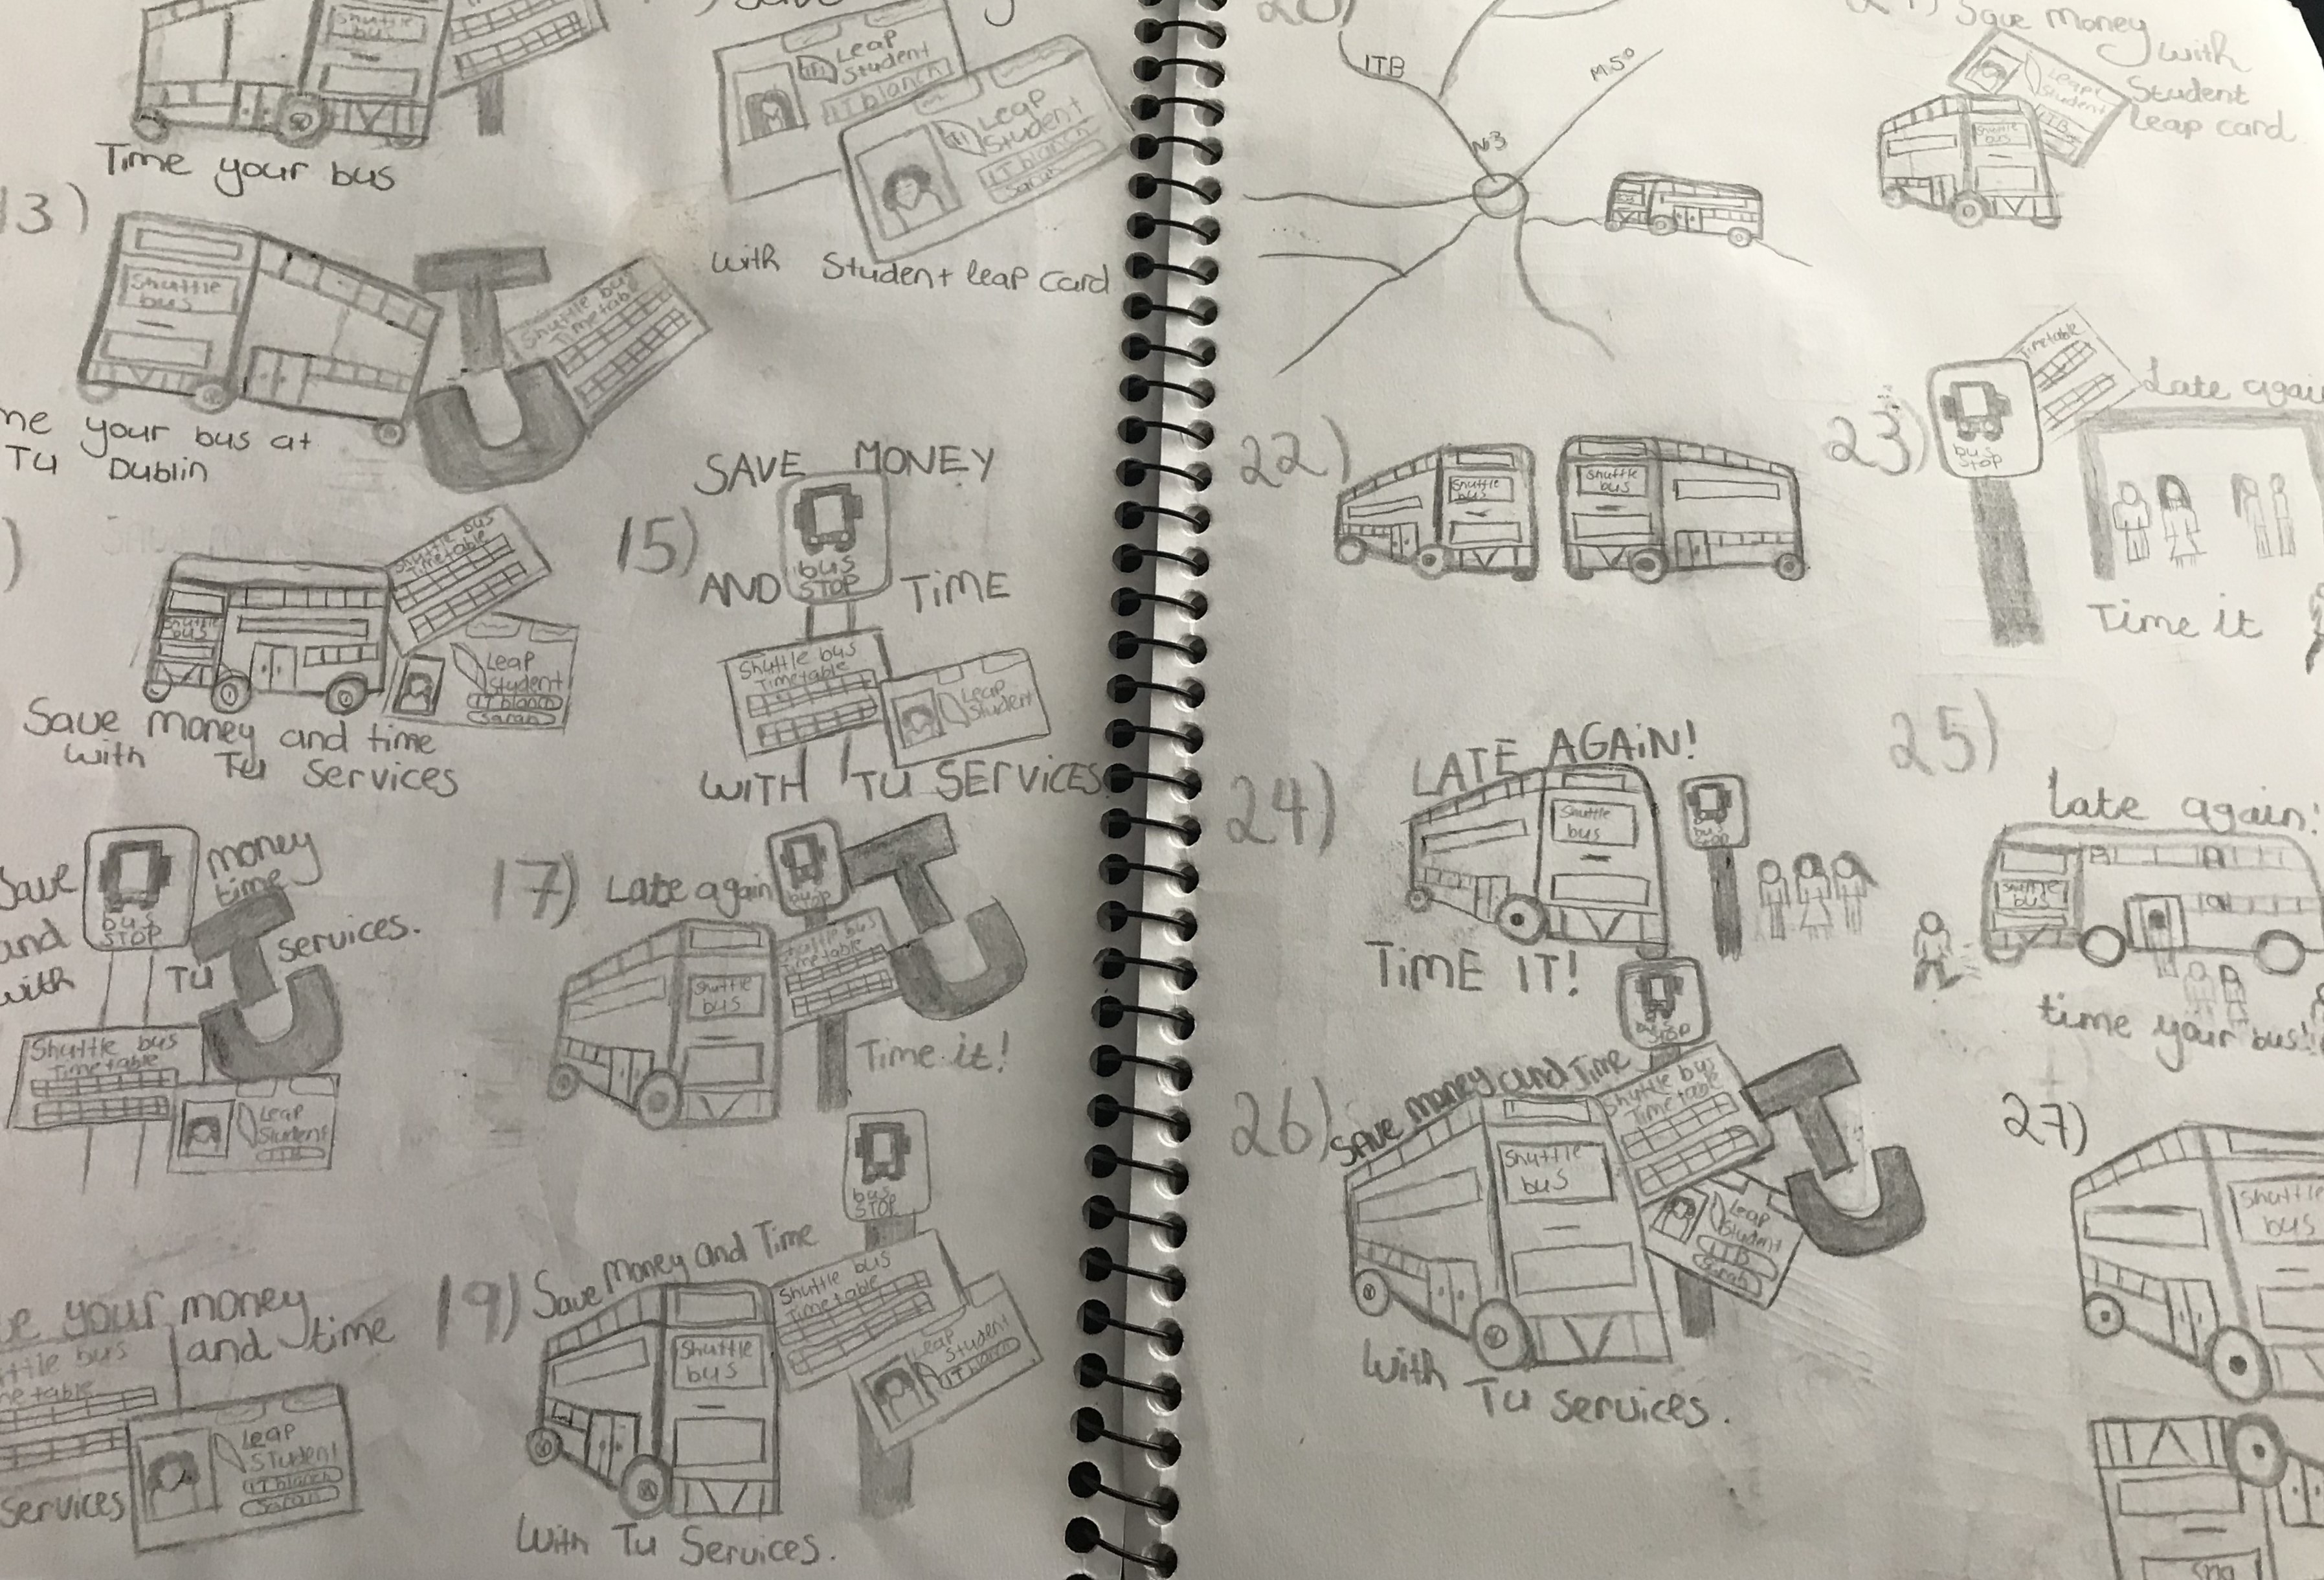 Shuttle
bus
Time your bus
Leap
Student
IT blanch
Leap
Student
IT blanch
Sarah
with Student leap card
13)
Shuttle
bus
Shuttle bus
Timetable
your bus at
TU Dublin
Shuttle bus
Timetable
Shuttle
bus
Leap
Student
IT blanch
Sarah
Save money and time
with TU services
15)
SAVE MONEY
bus
STOP
AND TIME
Shuttle bus
Timetable
Leap
Student
WITH TU SERVICES
Save money
time
bus
STOP
and services.
with TU
Shuttle bus
Timetable
Leap
Student
17)
Late again
bus
stop
Shuttle bus
Timetable
Shuttle
bus
Time it!
your money
and time
bus
Leap
Student
IT blanch
Sarah
services
19)
bus
STOP
Save Money and Time
Shuttle bus
Timetable
Shuttle
bus
Leap
Student
IT blanch
With TU Services.
20)
ITB
M50
N3
21) Save money
with
Student
leap card
Leap
Student
ITB
Shuttle
bus
22)
Shuttle
bus
Shuttle
bus
23)
Timetable
Late again
bus
STOP
Time it
24)
LATE AGAIN!
Shuttle
bus
bus
stop
TIME IT!
25)
late again!
Shuttle
bus
time your bus!!
26)
bus
stop
SAVE Money and Time
Shuttle bus
Timetable
Shuttle
bus
Leap
Student
ITB
Sarah
with
TU services.
27)
Shuttle
bus